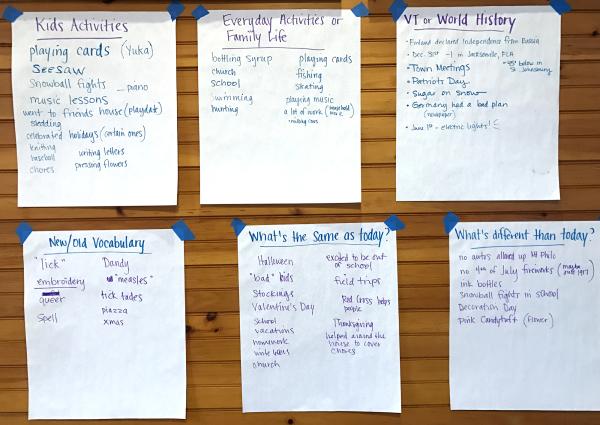 Kids Activities
playing cards (Yuka)
SEESAW
Snowball fights
piano
music lessons
went to friends house (playdate)
sledding
celebrated holidays (certain ones)
knitting
writing letters
baseball
pressing flowers
chores
Everyday Activities or
Family Life
bottling syrup
playing cards
church
fishing
school
skating
swimming
playing music
hunting
a lot of work (household
more)
VT or World History
Finland declared Independence from Russia
Dec. 31st -1 in Jacksonville, FLA
-48° below in
St. Johnsbury
Town Meetings
Patriots Day
Sugar on Snow
Germany had a bad plan
(newspaper)
June 1st - electric lights!
New/Old Vocabulary
"lick"
Dandy
embroidery
"measles"
queer
tick tades
spell
piazza
xmas
What's the Same as today?
Halloween
excited to be out
of school
"bad" kids
field trips
Stockings
Valentine's Day
Red Cross helps
people
school
vacations
Thanksgiving
homework
helped around the
house to cover
chores
church
What's different than today?
no autos allowed up Mt Philo
no 4th of July fireworks (maybe
ink bottles
snowball fights in school
Decoration Day
Pink Candytuft (flower)